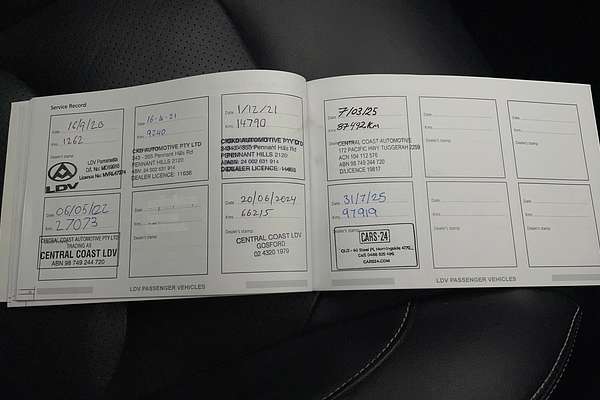 Service Record
Date 16/9/20
Kms 1262
Dealer's stamp
LDV Parramatta
LDV
Date 16-4-21
Kms 9240
Dealer's stamp
CKD AUTOMOTIVE PTY LTD
343 - 355 Pennant Hills Rd
PENNANT HILLS 2120
ABN: 24 002 631 914
DEALER LICENCE: 11636
Date 1/12/21
Kms 14790
CKD AUTOMOTIVE PTY LTD
343 - 355 Pennant Hills Rd
PENNANT HILLS 2120
ABN: 24 002 631 914
DEALER LICENCE:
Date 06/05/22
Kms 27073
Dealer's stamp
CENTRAL COAST AUTOMOTIVE PTY LTD
TRADING AS
CENTRAL COAST LDV
ABN 98 749 244 720
Date
Kms
Dealer's stamp
Date 20/06/2024
Kms 66215
Dealer's stamp
CENTRAL COAST LDV
GOSFORD
02 4320 1979
LDV PASSENGER VEHICLES
Date 7/03/25
Kms 87492Km
Dealer's stamp
CENTRAL COAST AUTOMOTIVE
172 PACIFIC HWY TUGGERAH 2259
ACN 104 112 576
ABN 98 749 244 720
D/LICENCE 19817
Date
Kms
Dealer's stamp
Date
Kms
Dealer's stamp
Date 31/7/25
Kms 97919
Dealer's stamp
CARS-24
CARS24.COM
Date
Kms
Dealer's stamp
Date
Kms
Dealer's stamp
LDV PASSENGER VEHICLES